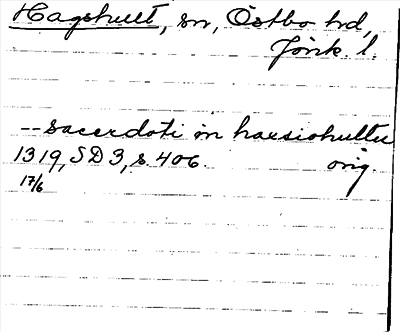 Hagshult, sn, Östbo hd,
Jönk. l.
-- sacerdoti in haxiohultu
1319, SD 3, s. 406. orig.
17/6